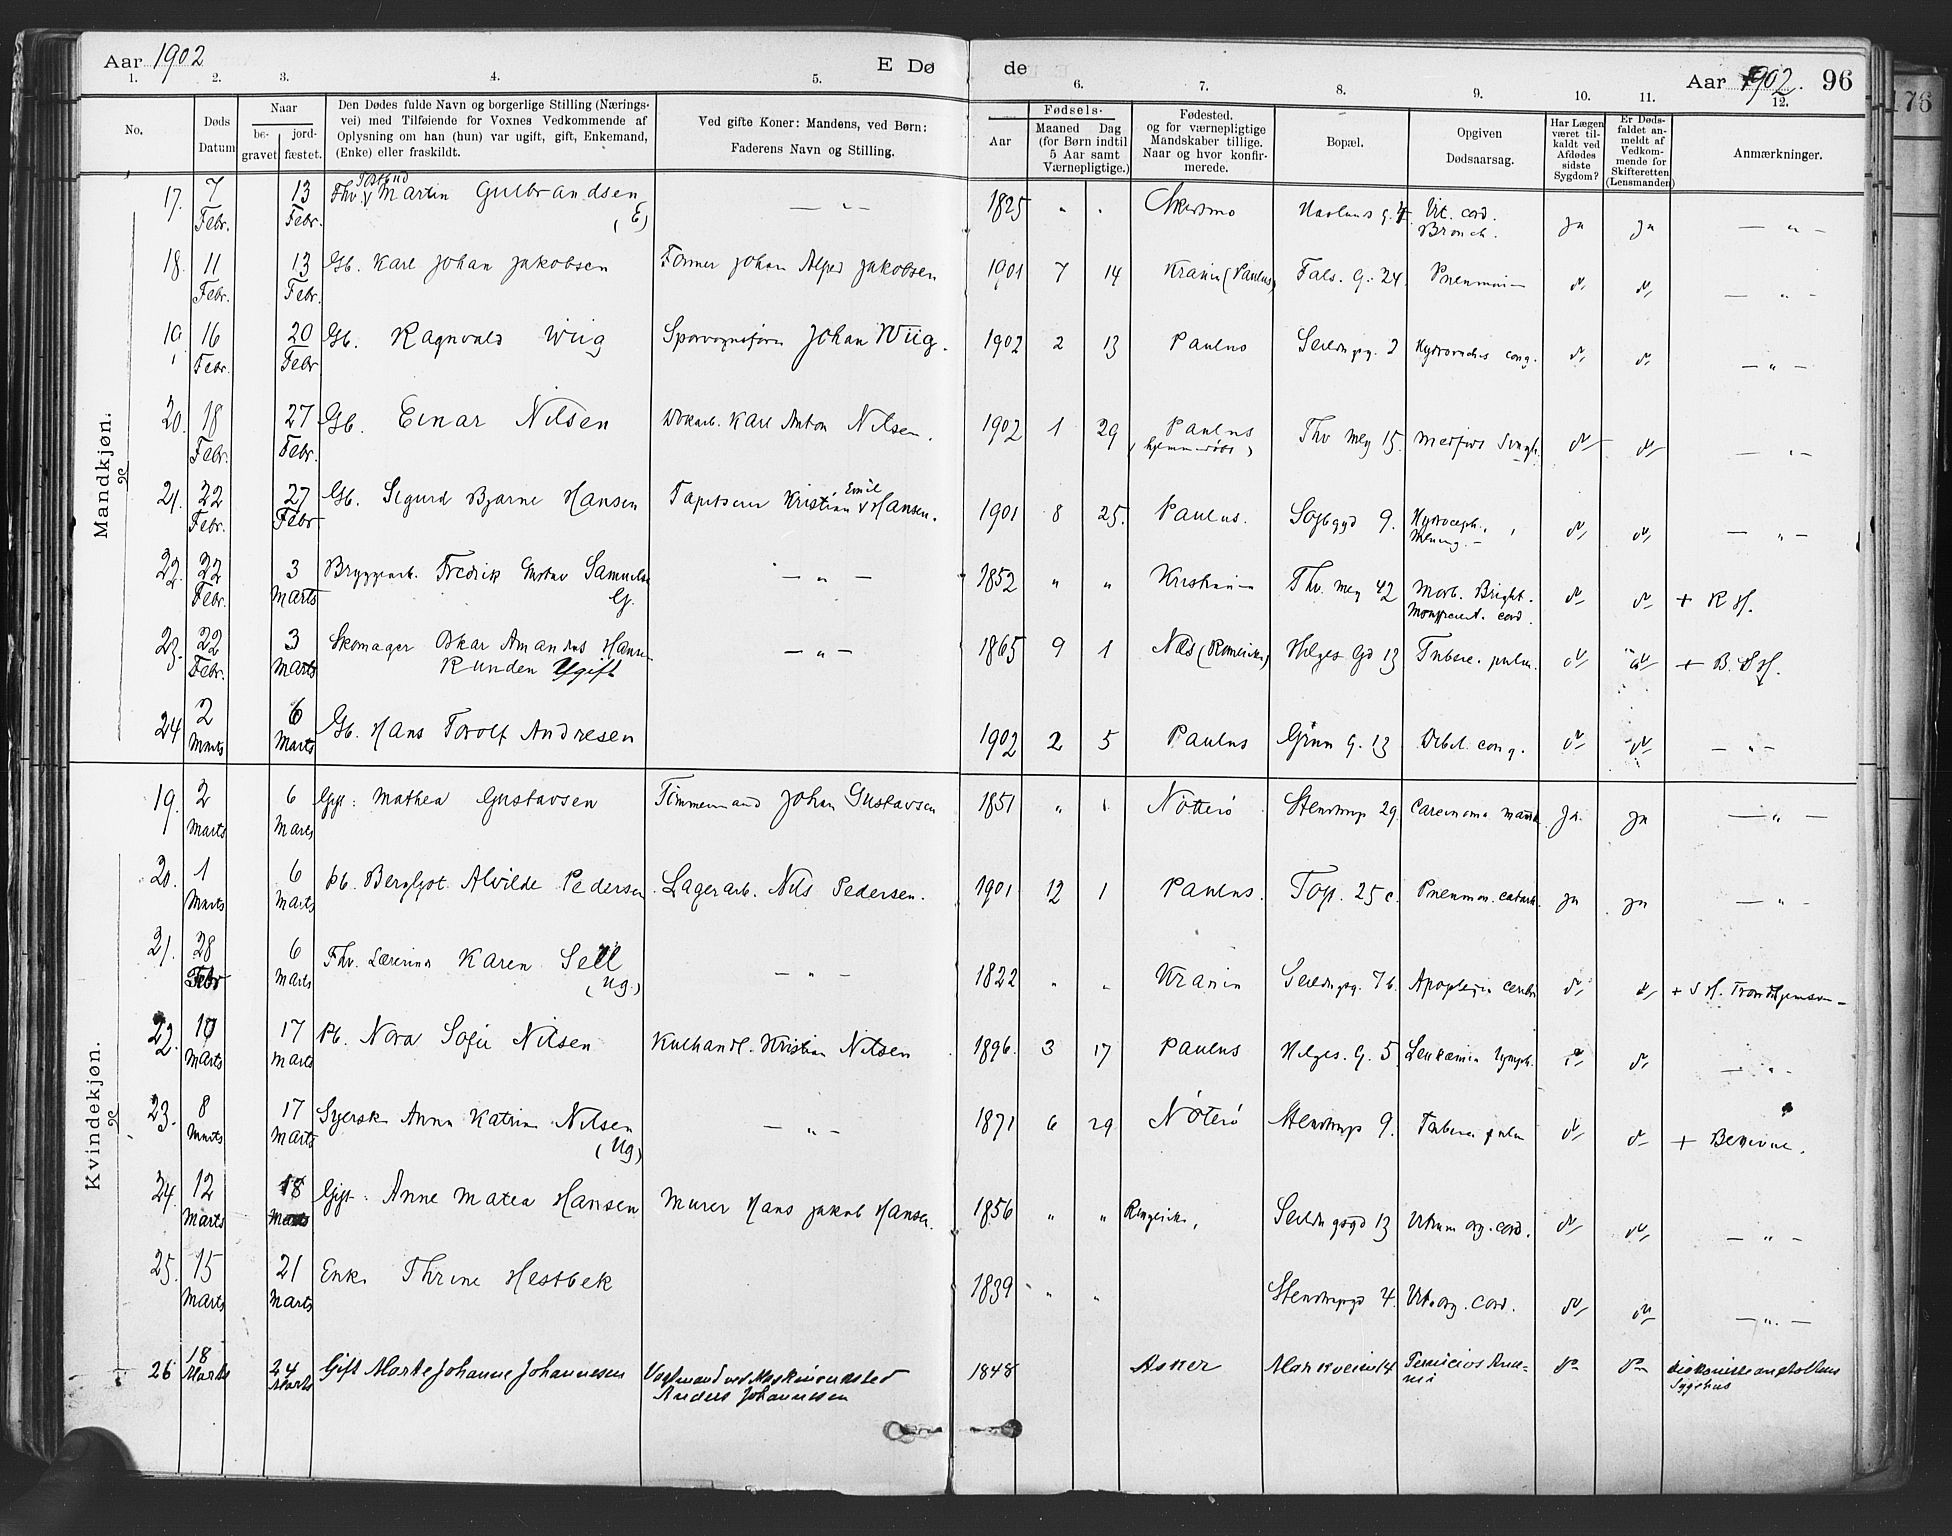 Aar 1902
E Dø
de
Aar 1902. 96
176
1. 2. 3. 4. 5. 6. 7. 8. 9. 10. 11. 12.
No.
Døds Datum
Naar
be-gravet
jord-fæstet.
Den Dødes fulde Navn og borgerlige Stilling (Nærings-
vei) med Tilføiende for Voxnes Vedkommende af
Oplysning om han (hun) var ugift, gift, Enkemand,
(Enke) eller fraskildt.
Ved gifte Koner: Mandens, ved Børn:
Faderens Navn og Stilling.
Fødsels-
Aar
Maaned Dag
(for Børn indtil
5 Aar samt
Værnepligtige.)
Fødested.
og for værnepligtige
Mandskaber tillige.
Naar og hvor konfir-
merede.
Bopæl.
Opgiven
Dødsaarsag.
Har Lægen
været til-
kaldt ved
Afdødes
sidste
Sygdom?
Er Døds-
faldet an-
meldt af
Vedkom-
mende for
Skifteretten
(Lensmanden)
Anmærkninger.
Mandkjøn.
17. 7 Febr. 13 Febr. Fhv. Postbud Martin Gulbrandsen (E) — " — 1825 " " Skedsmo Vit. cord. Bronch. ja ja — " —
18. 11 Febr. 13 Febr. Gb. Karl Johan Jakobsen Former Johan Alfred Jakobsen 1901 7 14 Krania (Paulus) Fals. G. 24. Pneumoni do do — " —
19. 16 Febr. 20 Febr. Gb. Ragnvald Wiig Sporvognsfører Johan Wiig. 1902 2 13 Paulus Seildugsg. cong. do do — " —
20. 18 Febr. 27 Febr. Gb. Einar Nilsen Karl Anton Nilsen. 1902 1 29 Paulus (hjemmedøbt) Thv Mey 15. do do — " —
21. 22 Febr. 27 Febr. Gb. Sigurd Bjarne Hansen Tapetserer Kristian Emil Hansen. 1901 8 25. Paulus. 9. Hydroceph. Mening. do do — " —
22. 22 Febr. 3 Marts Bryggearb. Fredrik Gustav Samuelsen G. — " — 1852 " " Kristiania Thv. Mey 42 Morb. Bright. cord. do do + R H.
23. 22 Febr. 3 Marts Skomager Oskar Amandus Hansen Runden Ugift — " — 1865 9 1 Næs (Romerike) Helges Gd 13 Tuberc. pulm. do do
24 2 Marts 6 Marts Gb. Hans Torolf Andresen 1902 2 5 Paulus Grün G. 13 Debil. cong. do do — " —
Kvindekjøn.
19. 2 Marts 6 Marts Gift: Mathea Gustavsen Tømmermand Johan Gustavsen 1851 " " Nøtterø Stenstrup 29. Carcinoma mamm. ja ja — " —
20. 1 Marts 6 Marts Pb. Bergljot Alvilde Pedersen Lagerarb. Nils Pedersen. 1901 12 1 Paulus. Top. 25 c. Pneumon. catarh. ja ja — " —
21. 28 Febr 6 Marts Fhv. Lærerinde Karen Sell (Ug.) — " — 1822 " " Krania Seildugsg. 7 b. Apoplexia cerebri do do
22. 10 Marts 17 Marts Pb. Nora Sofie Nilsen Kulhandl. Kristian Nilsen 1896. 3 17 Paulus Helges. G. 5 Leukæmia lymph. do do — " —
23. 8 Marts 17 Marts Syerske Anna Katrine Nilsen (Ug) — " — 1871 6 29 Nøterø Stenstrup 9. Tuberc pulm do do
24. 12 Marts 18 Marts Gift: Anne Matea Hansen Murer Hans Jakob Hansen. 1856 " " Ringerike, Seildugsgd 13 Vitium org. cord. do do — " —
25. 15 Marts 21 Marts Enke Thrine Hestbek 1839 " " Stenstrupgd 4. Vit. org. cord. do do — " —
26 18 Marts 24 Marts Gift Marte Johanne Johannesen Anders Johannesen 1848 Asker Markveien 14 Pernicios Anæ-mi do do Diakonisseanstaltens Sygehus